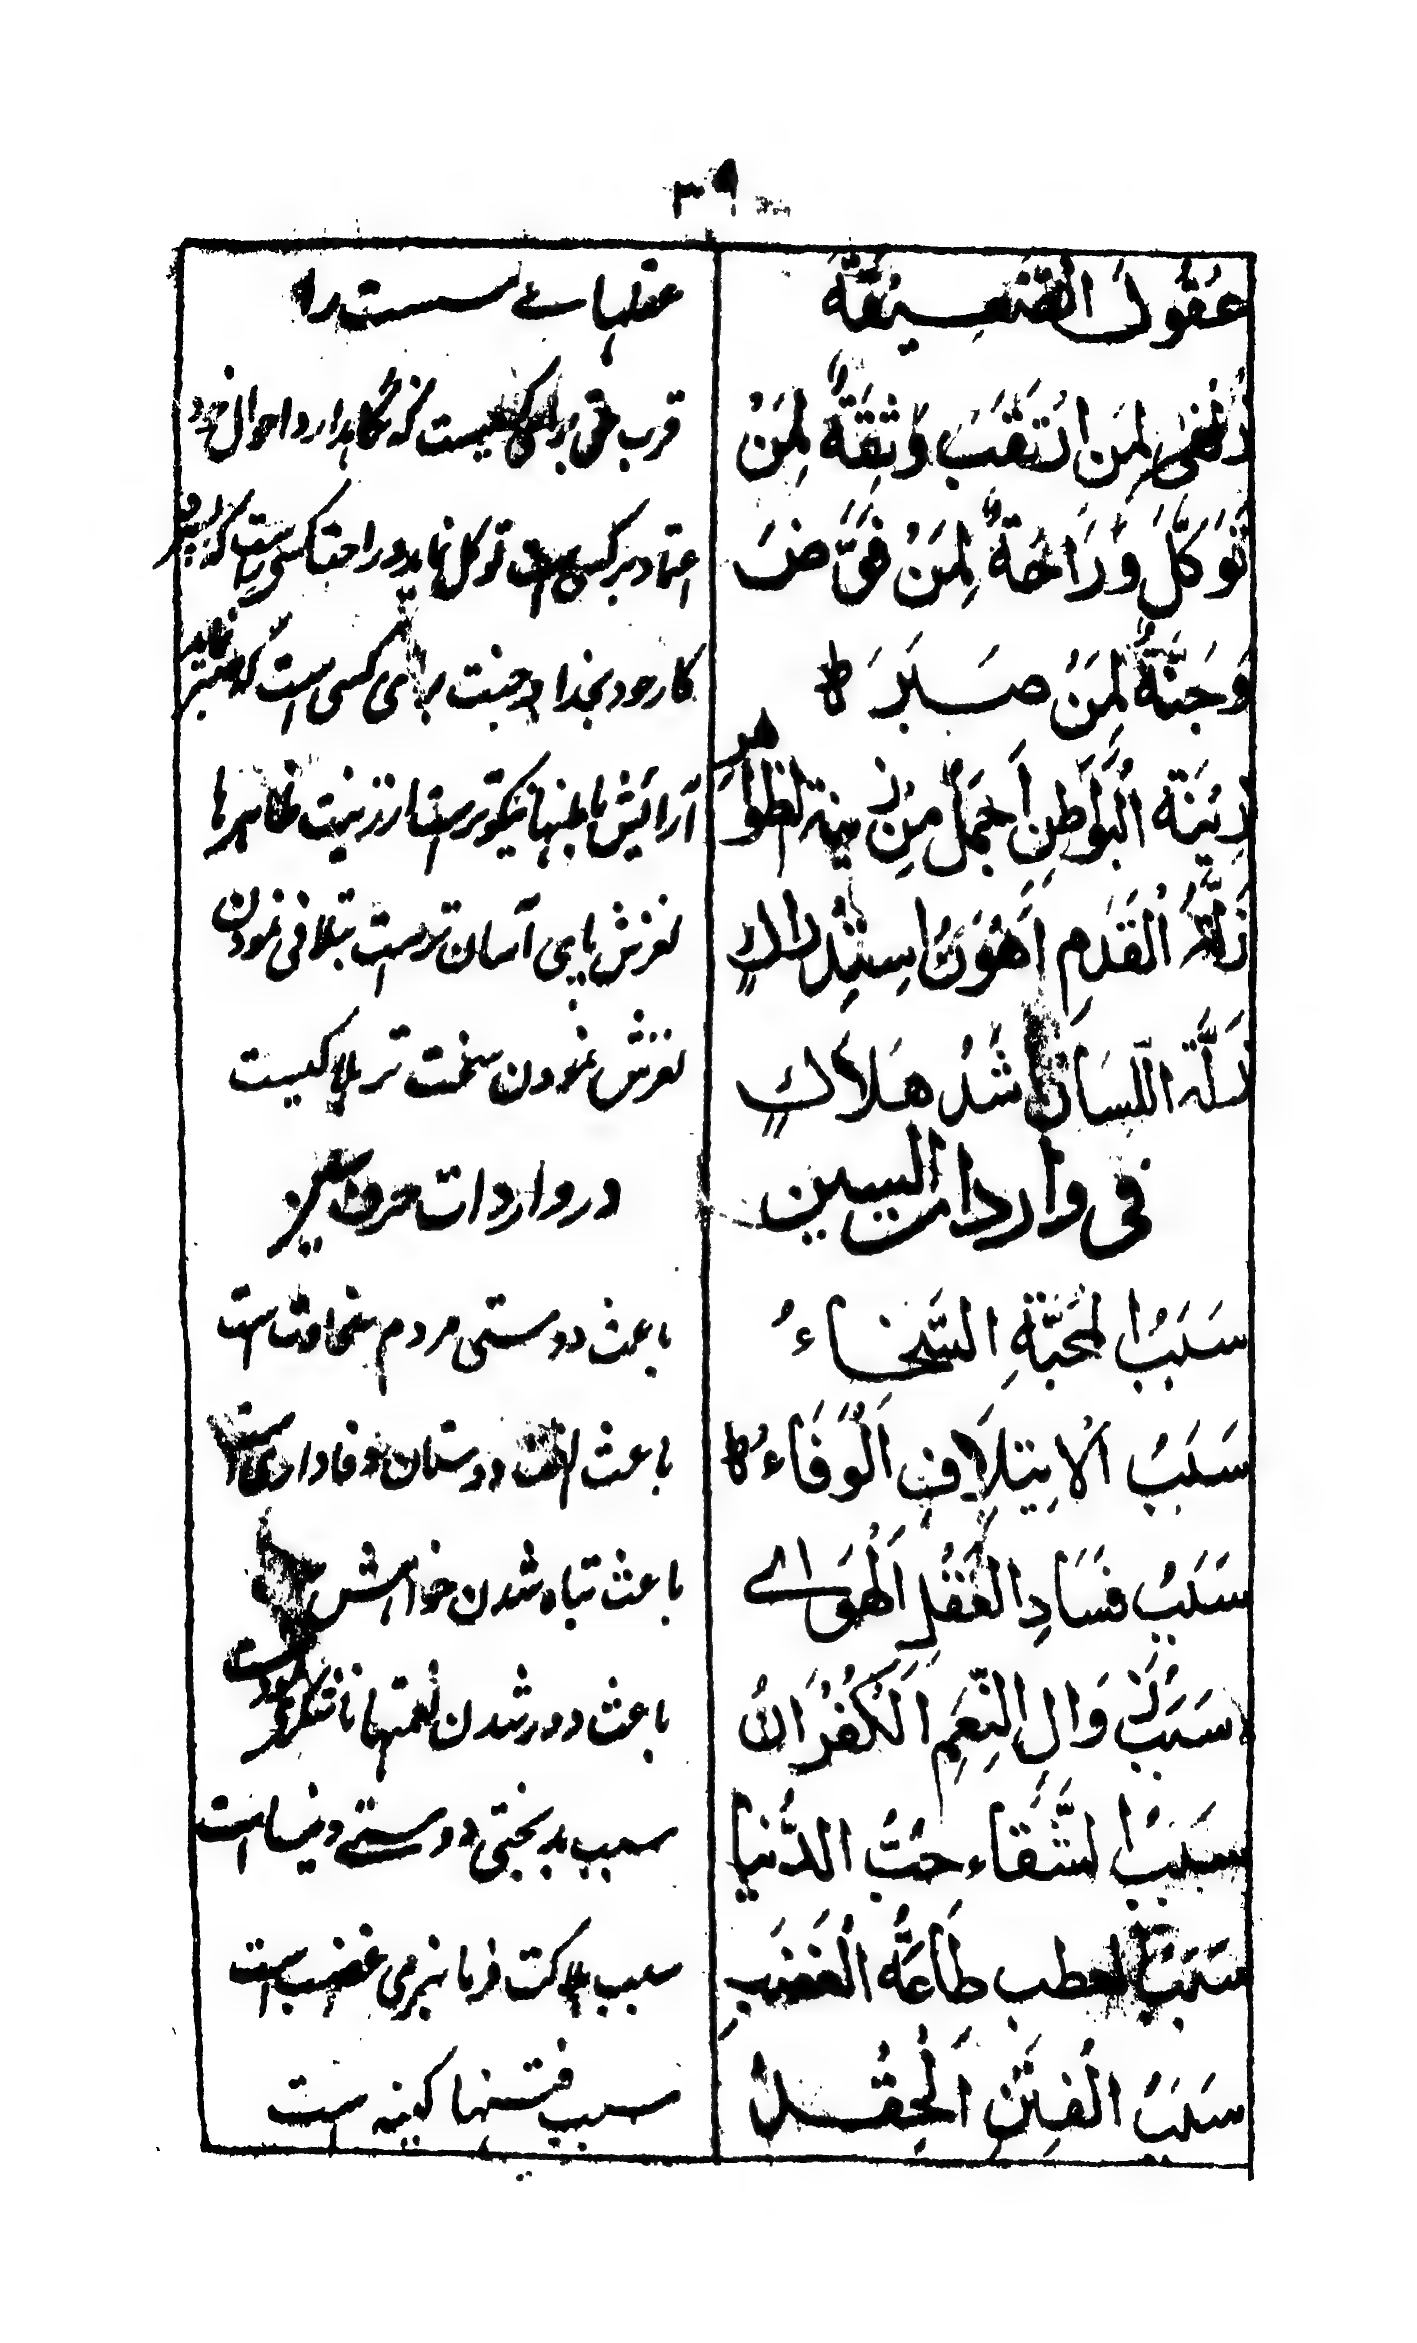 ۳۹
عُقُوْلُ الضَّعِيْفَةِ
عقلہاے سست را
زُلْفٰى لِمَنِ ارْتَقَبَ وَثِقَةٌ لِمَنْ
قرب حق برای کسیست که نگاہدارد احوال خود
تَوَكَّلَ وَرَاحَةٌ لِمَنْ فَوَّضَ
اعتماد برکسی است توکل نماید و راحت کسی راست که سپرد
وَجَنَّةٌ لِمَنْ صَبَرَ ط
کار خود بخدا و جنت برای کسی است که صبر نماید
زِيْنَةُ الْبَوَاطِنِ اَجْمَلُ مِنْ زِينة الظواهر
آرایش باطنہا نیکوترست از زینت ظاہرہا
زَلَّةُ الْقَدَمِ اَهْوَنُ اسْتِدْرَاكٍ
لغزش پای آسان ترست بتلافی نمودن
زَلَّةُ اللِّسَانِ اَشَدُّ هَلَاكٍ
لغزش نمودن سخت تر ہلاکیست
فی واردات السین
در واردات حرف سین
سَبَبُ الْمَحَبَّةِ السَّخَاءُ
باعث دوستی مردم سخاوت است
سَبَبُ الْاِيْتِلَافِ اَلْوَفَاءُ ط
باعث الفت دوستان وفاداری است
سَبَبُ فَسَادِ الْعَقْلِ اَلْهَوَاے
باعث تباہ شدن خواہش
سَبَبُ زَوَالِ النِّعَمِ اَلْكُفْرَانُ
باعث دور شدن نعمتہا ناشکری
سَبَبُ الشَّقَاءِ حُبُّ الدُّنْيَا
سبب بدبختی دوستے دنیا است
سَبَبُ العطب طَاعَةُ الْغَضَبِ
سبب ہلاکت فرمانبرمی غضب است
سَبَبُ الْفِتَنِ اَلْحِقْدُ
سبب فتنہا کینہ است